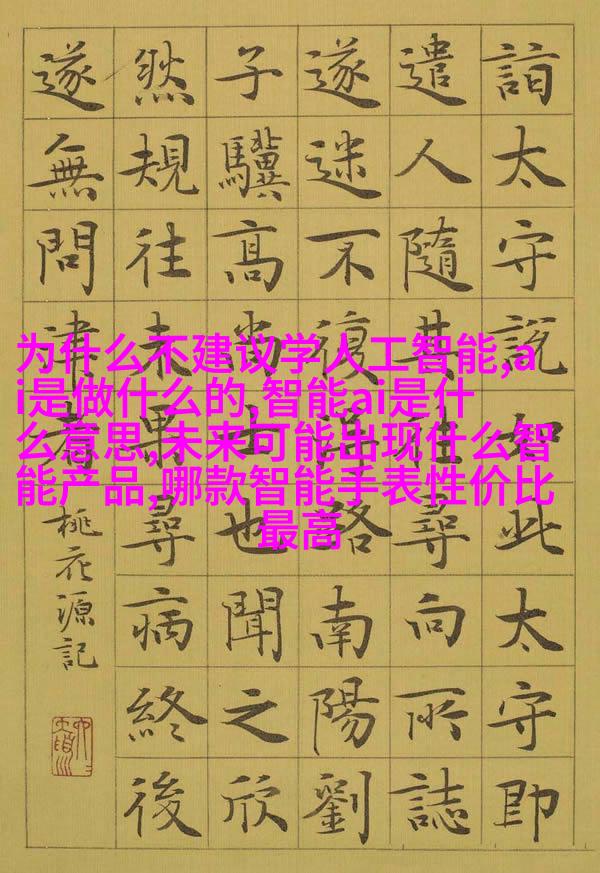 詣太守說如此太守即
遣人隨其往尋向所誌
遂迷不復得路南陽劉
子驥高尚士也聞之欣
然規往未果尋病終後
遂無問津者
桃花源記
为什么不建议学人工智能,a
i是做什么的,智能ai是什
么意思,未来可能出现什么智
能产品,哪款智能手表性价比
最高